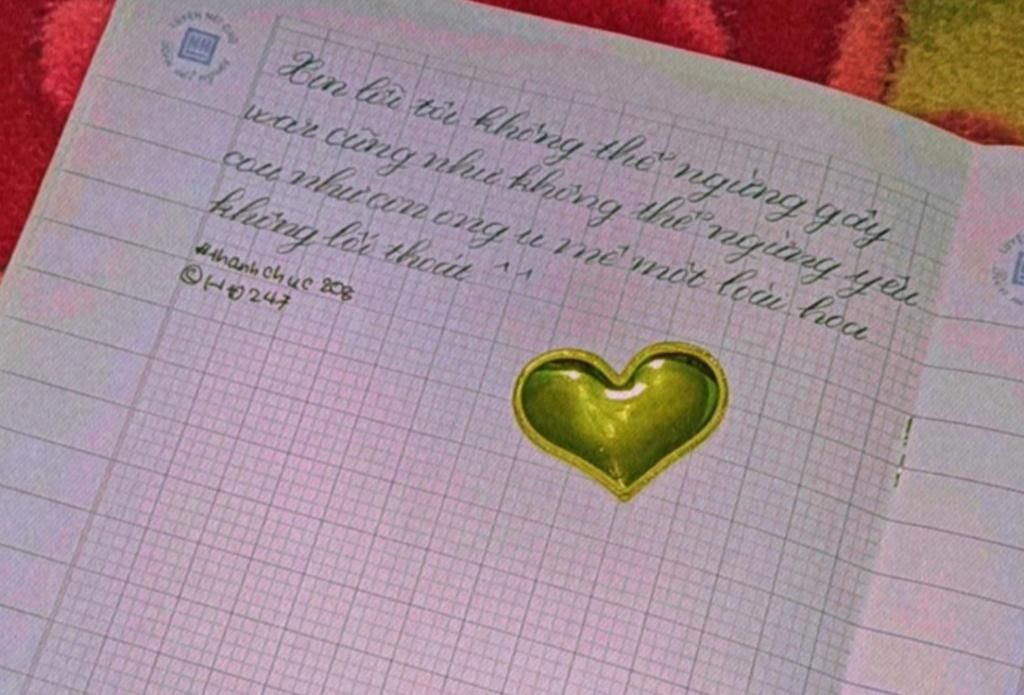 Xin lỗi tôi không thể ngừng gây
war cũng như không thể ngừng yêu
cou như con ong u mê một loài hoa
không lối thoát ^^
#thanhchuc 208
©HĐ247